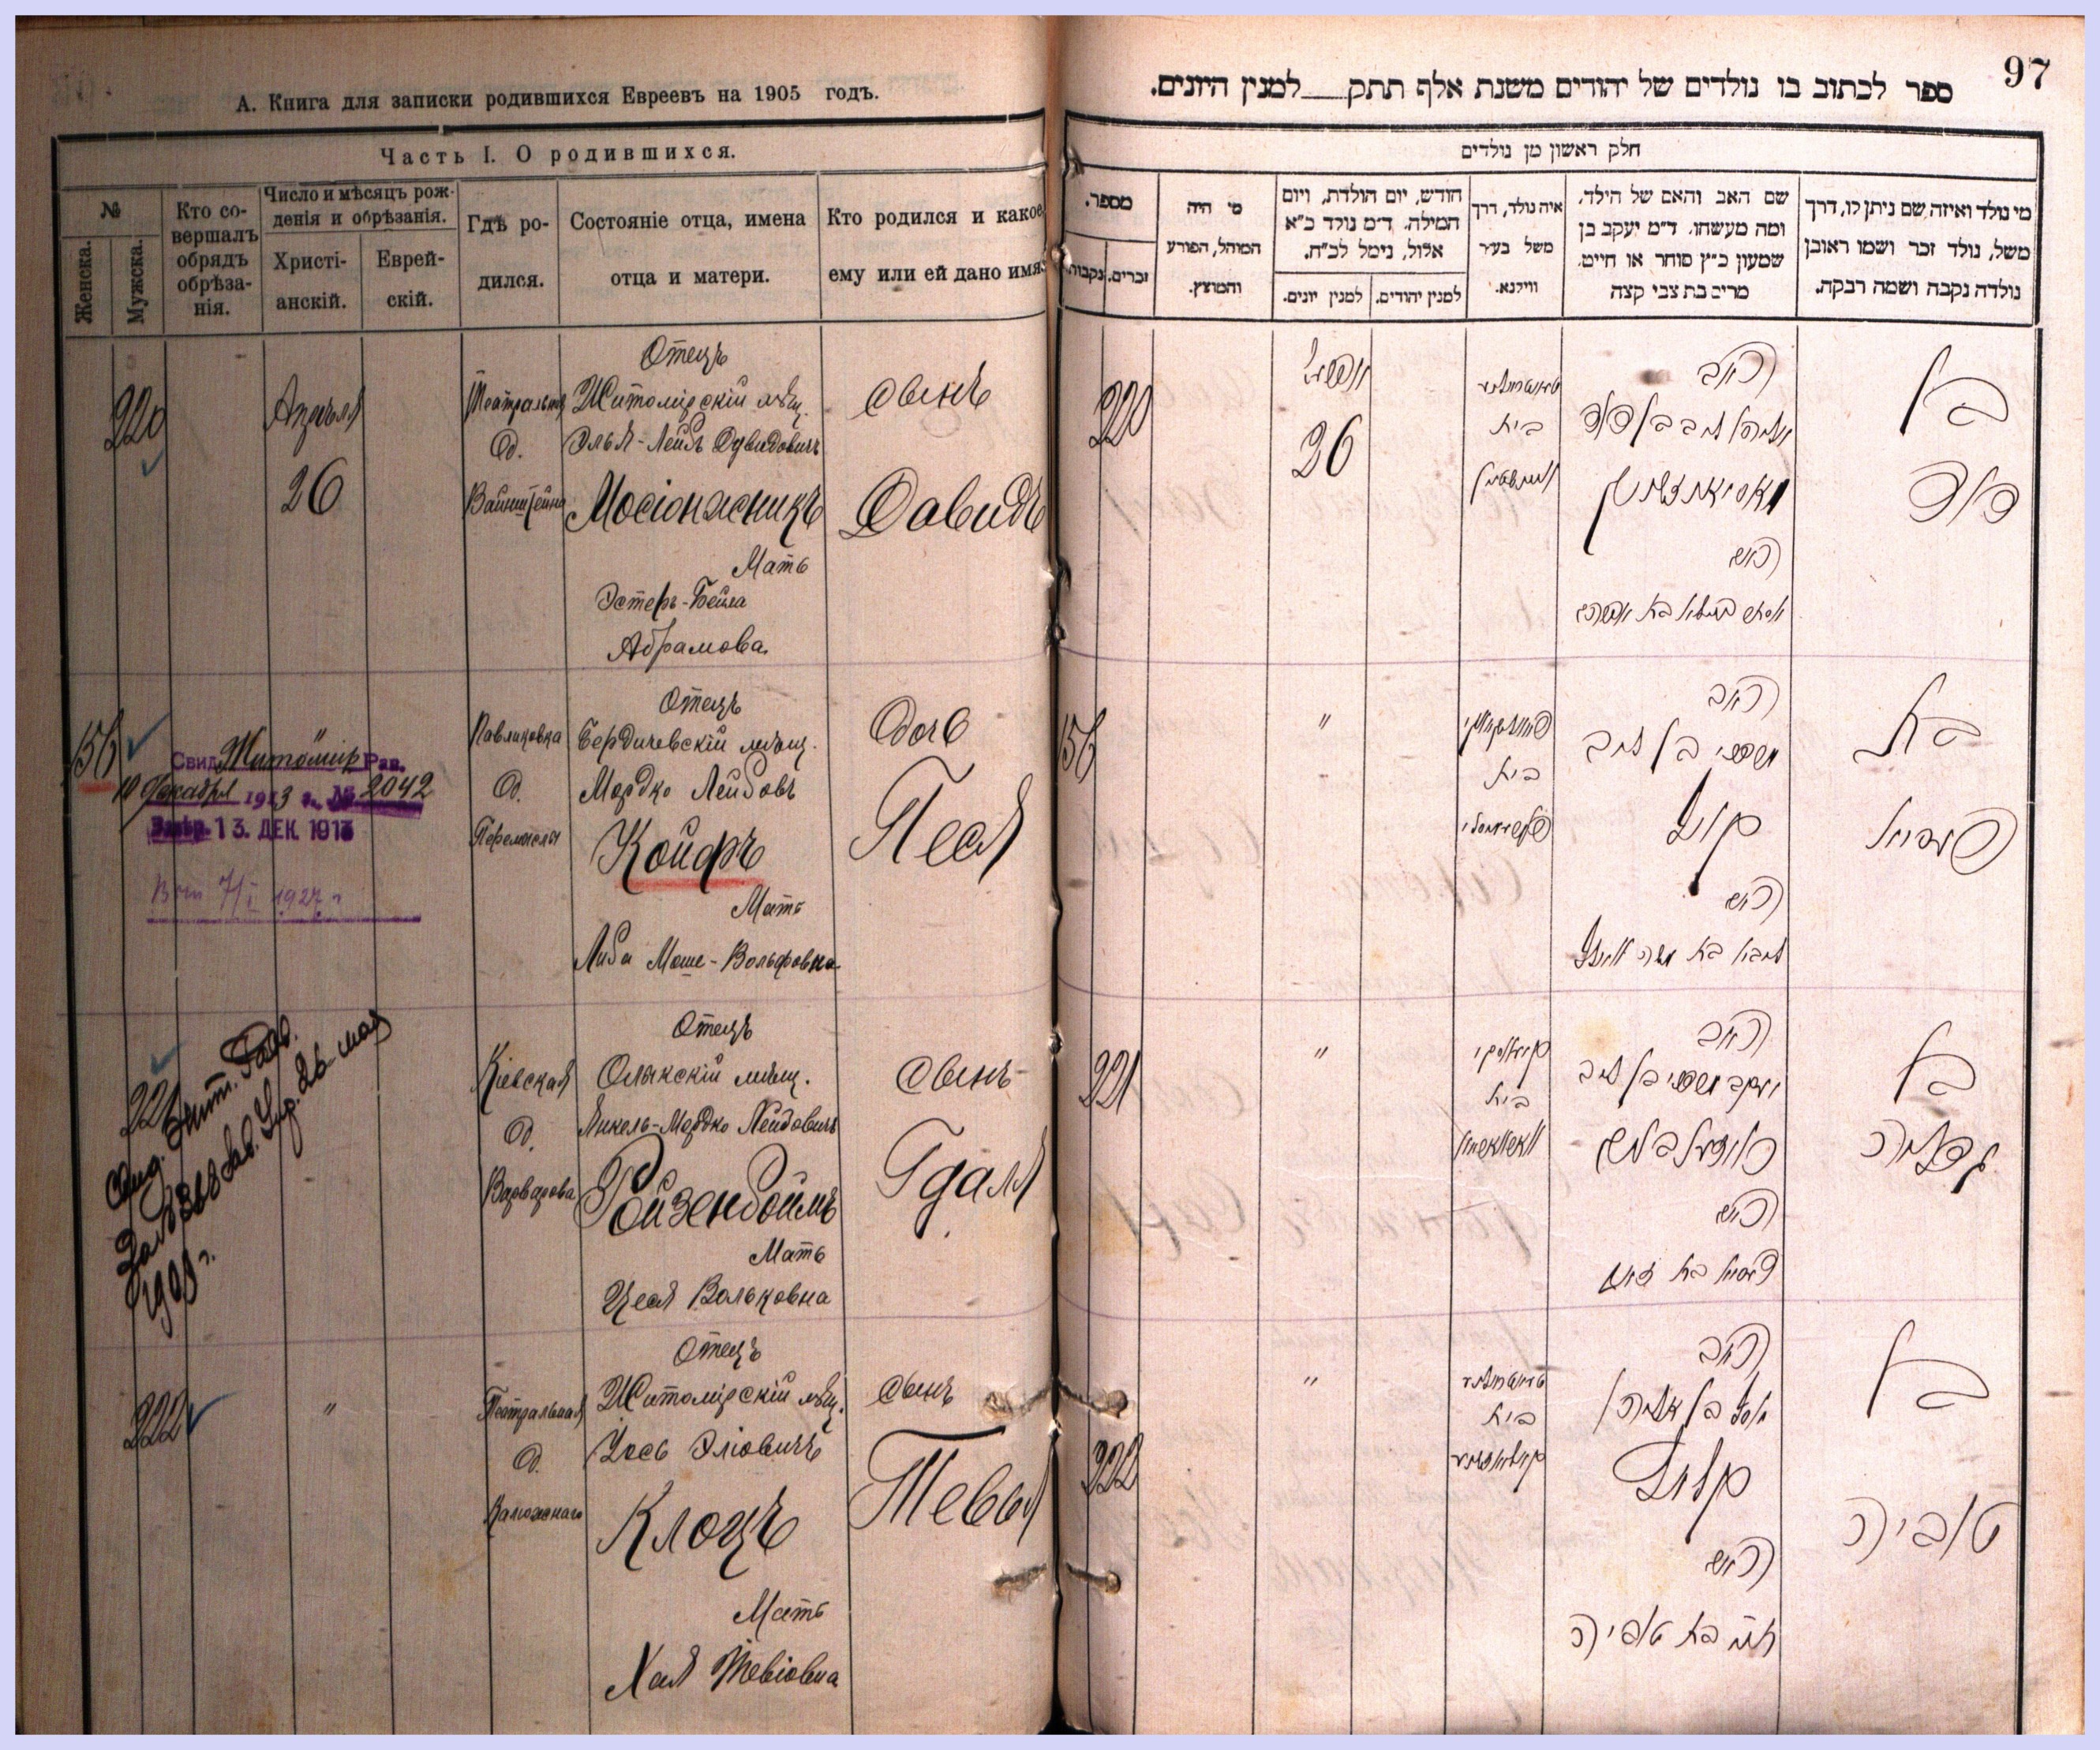 А. Книга для записки родившихся Евреевъ на 1905 годъ.
Часть I. О родившихся.
№
Женска.
Мужска.
Кто совершалъ обрядъ обрѣзанія.
Число и мѣсяцъ рожденія и обрѣзанія.
Христіанскій.
Еврейскій.
Гдѣ родился.
Состояніе отца, имена отца и матери.
Кто родился и какое ему или ей дано имя
220
Апрѣля
26
Театральная
д.
Вайнштейна
Отецъ
Житомірскій мѣщ.
Эль-Лейбъ Дувидовичъ
Мосіонжникъ
Мать
Эстеръ-Бейла
Абрамова
сынъ
Давидъ
156
"
Свид. Житомір Рав.
10 Декабря 1913 г. № 2042
13. ДЕК. 1913
7/I 1927 г
Павликовка
д.
Отецъ
Бердичевскій мѣщ.
Мордко Лейбовъ
Койфъ
Мать
Либа Моше-Вольфовна
Дочь
Песя
221
Свид. Жит.
26 мая
1908 г.
Кіевская
д.
Варварова
Отецъ
Олыкскій мѣщ.
Янкель-Мордко Лейбовичъ
Ройзенбоймъ
Мать
Цеся Вольковна
сынъ
Гдаля
222
"
Театральная
д.
Отецъ
Житомірскій мѣщ.
Іось Эліовичъ
Клоцъ
Мать
Хая Тевіовна
сынъ
Тевья
97
ספר לכתוב בו נולדים של יהודים משנת אלף תתק___למנין היונים.
חלק ראשון מן נולדים
מספר.
נקבות.
זכרים.
מי היה
המוהל, הפורע
והמוצץ.
חודש, יום הולדת, ויום
המילה. ד״מ נולד כ״א
אלול, נימל לכ״ח.
למנין יונים.
למנין יהודים.
איה נולד, דרך
משל בעיר
ווילנא.
שם האב והאם של הילד,
ומה מעשהו. ד״מ יעקב בן
שמעון כ״ץ סוחר או חייט,
מרים בת צבי קצה
מי נולד ואיזה שם ניתן לו, דרך
משל, נולד זכר ושמו ראובן
נולדה נקבה ושמה רבקה.
220
אפריל
26
בית
האב
דוד
האם
בן
דוד
156
"
בית
האב
מרדכי בן ליב
קויף
האם
בת
פעסיא
221
"
בית
האב
יעקב מרדכי בן ליב
רויזענבוים
האם
בן
גדליה
222
"
בית
האב
קלוץ
האם
חיה בת טוביה
בן
טוביה